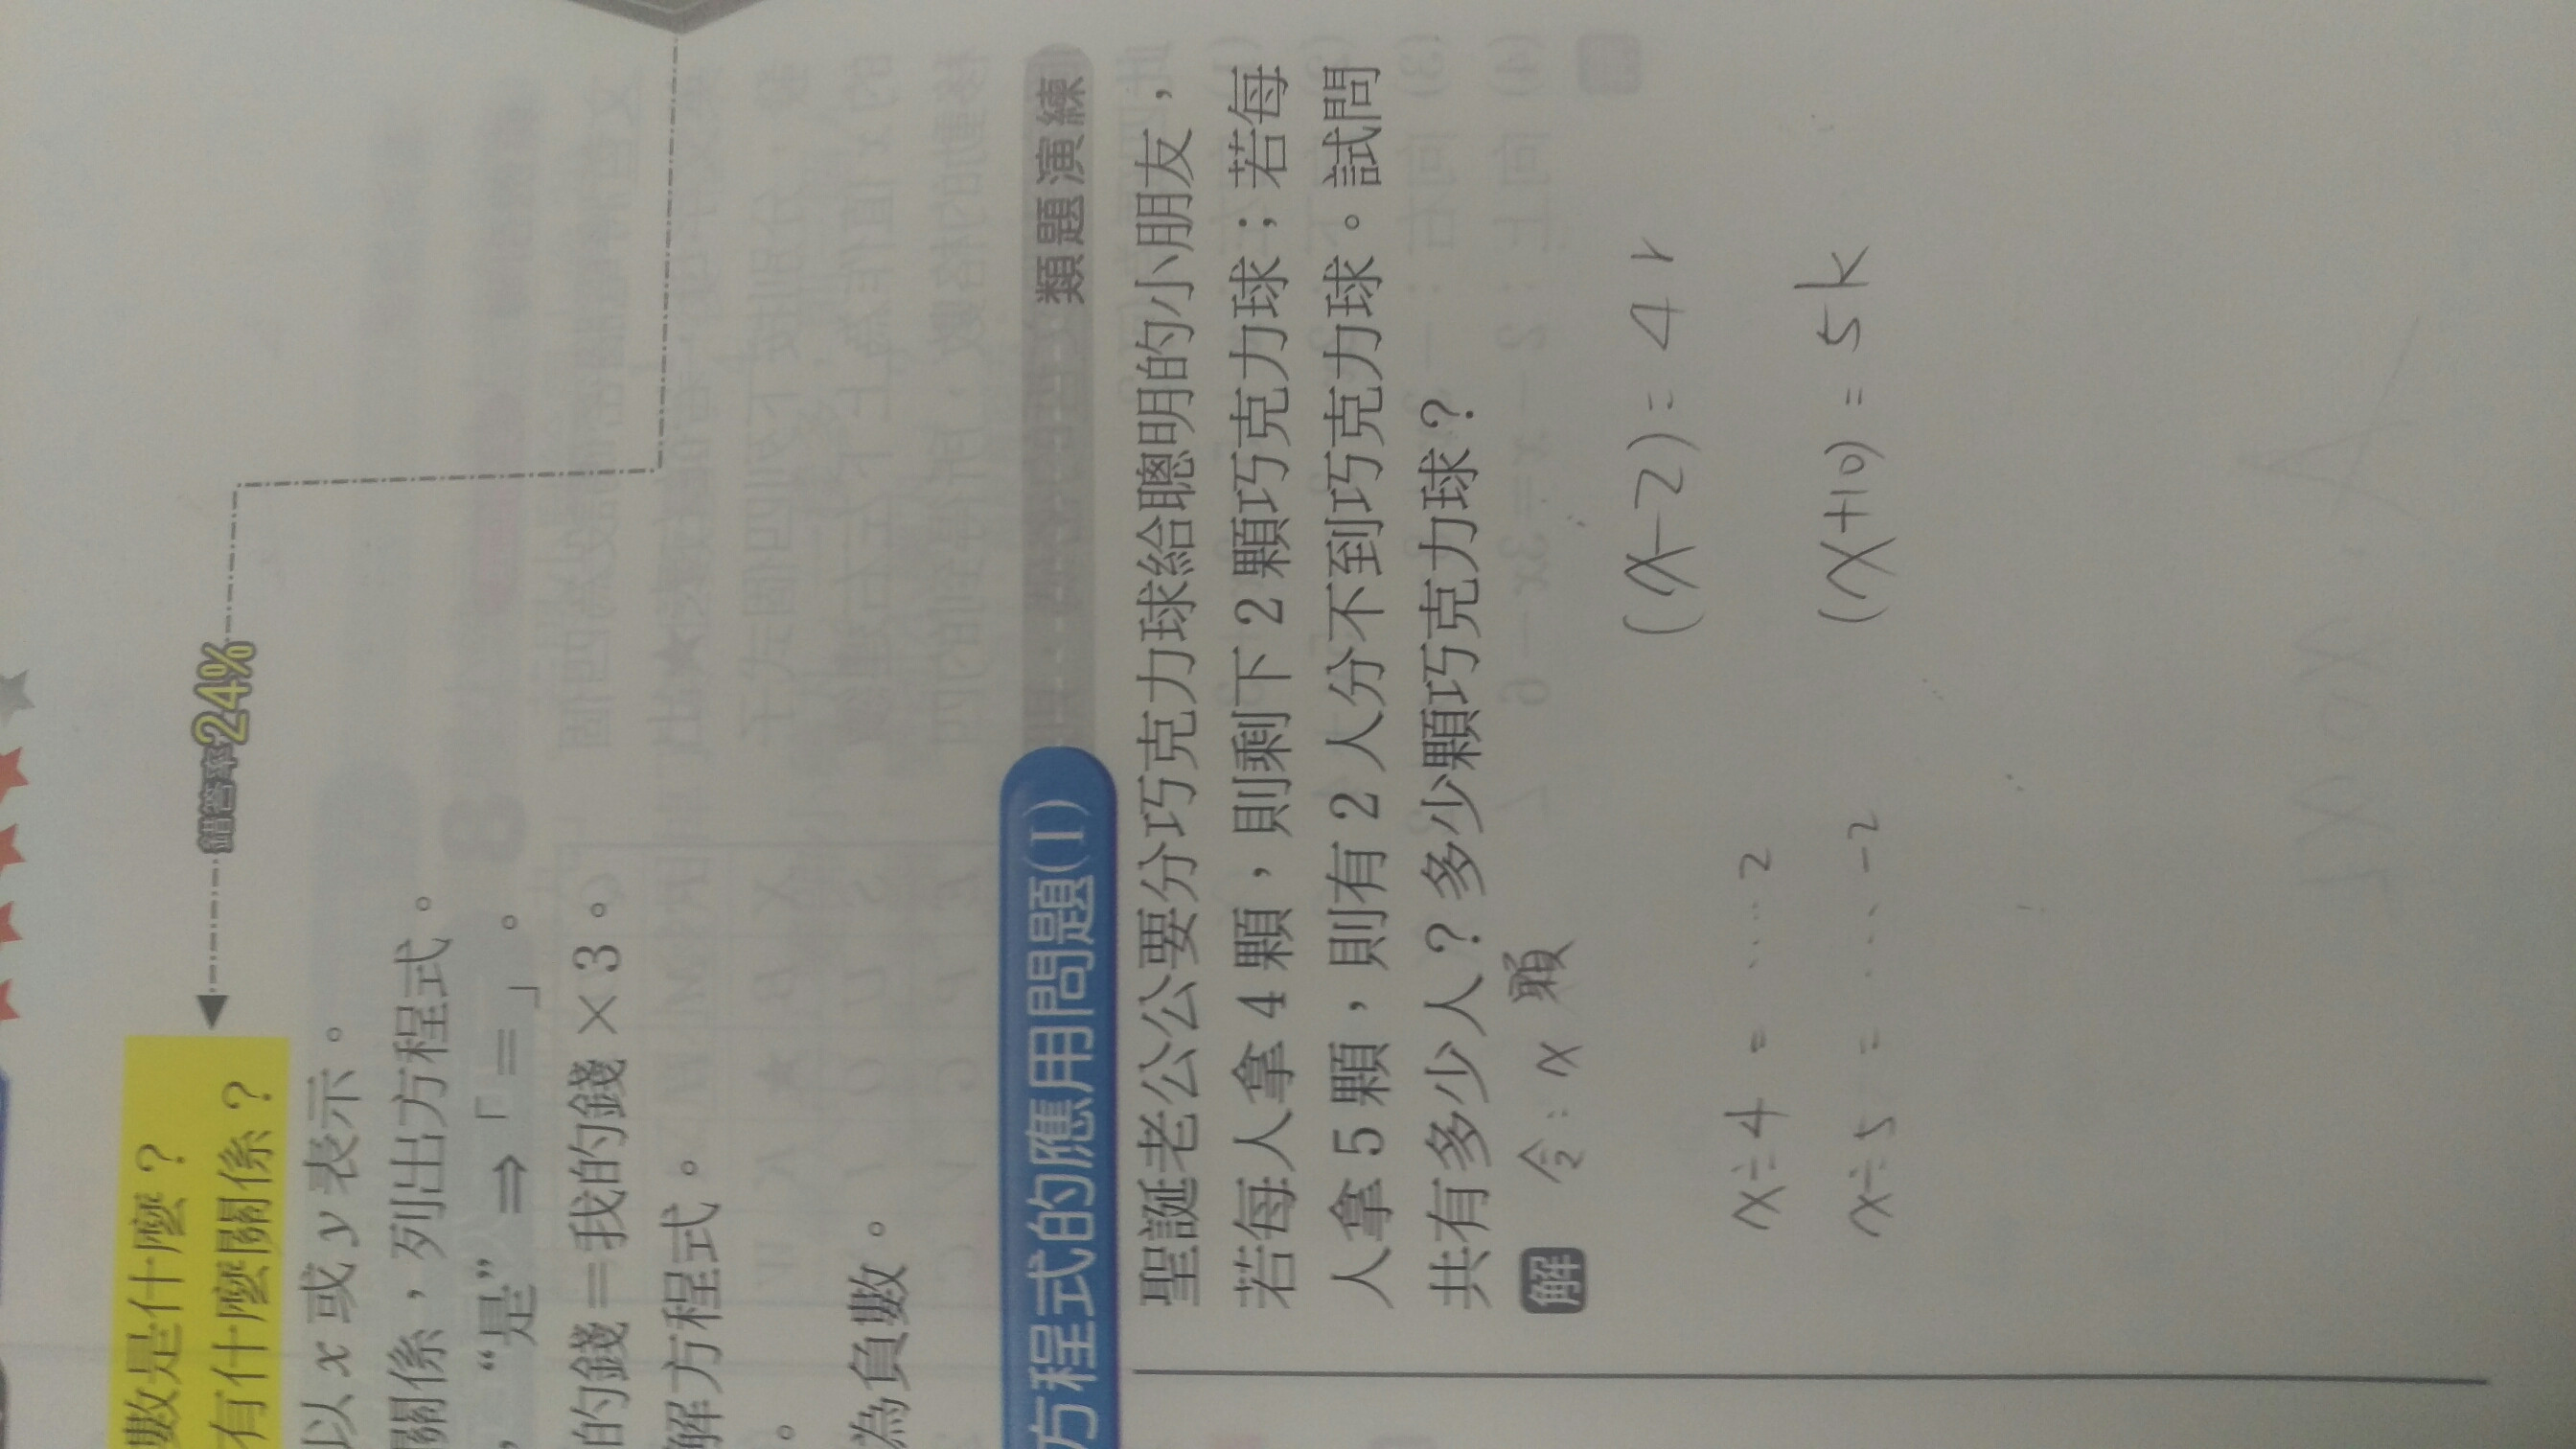 錯答率24%
數是什麼？
有什麼關係？
以 x 或 y 表示。
關係，列出方程式。
，“是”⇒「＝」。
的錢＝我的錢×3。
解方程式。
。
為負數。
方程式的應用問題(1)
類題演練
聖誕老公公要分巧克力球給聰明的小朋友，
若每人拿 4 顆，則剩下 2 顆巧克力球；若每
人拿 5 顆，則有 2 人分不到巧克力球。試問
共有多少人？多少顆巧克力球？
解 令：x 顆
(x-2)=4r
x÷4=...2
(x+10)=5k
x÷5=...-2